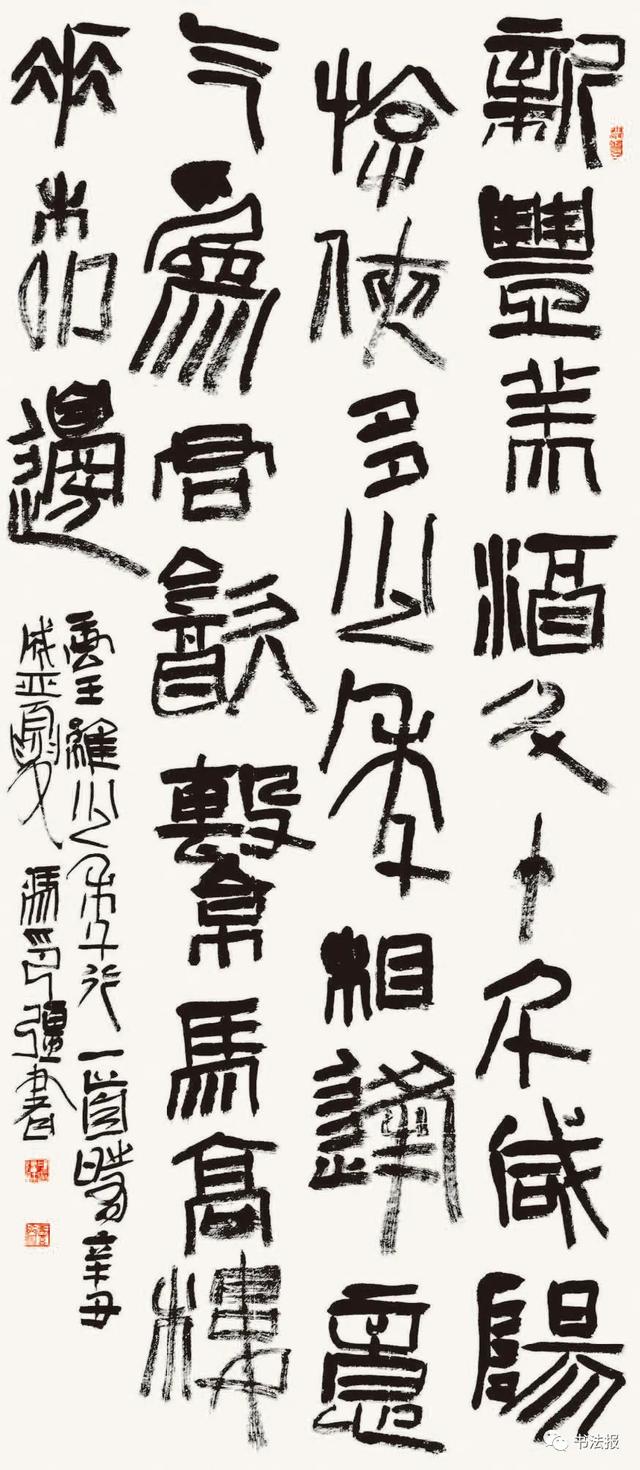 新豐美酒斗十千咸陽
游俠多少年相逢意
气為君飲繫馬高樓
垂柳邊
王維少年行一首時辛丑
盛夏馮印彊書
书法报